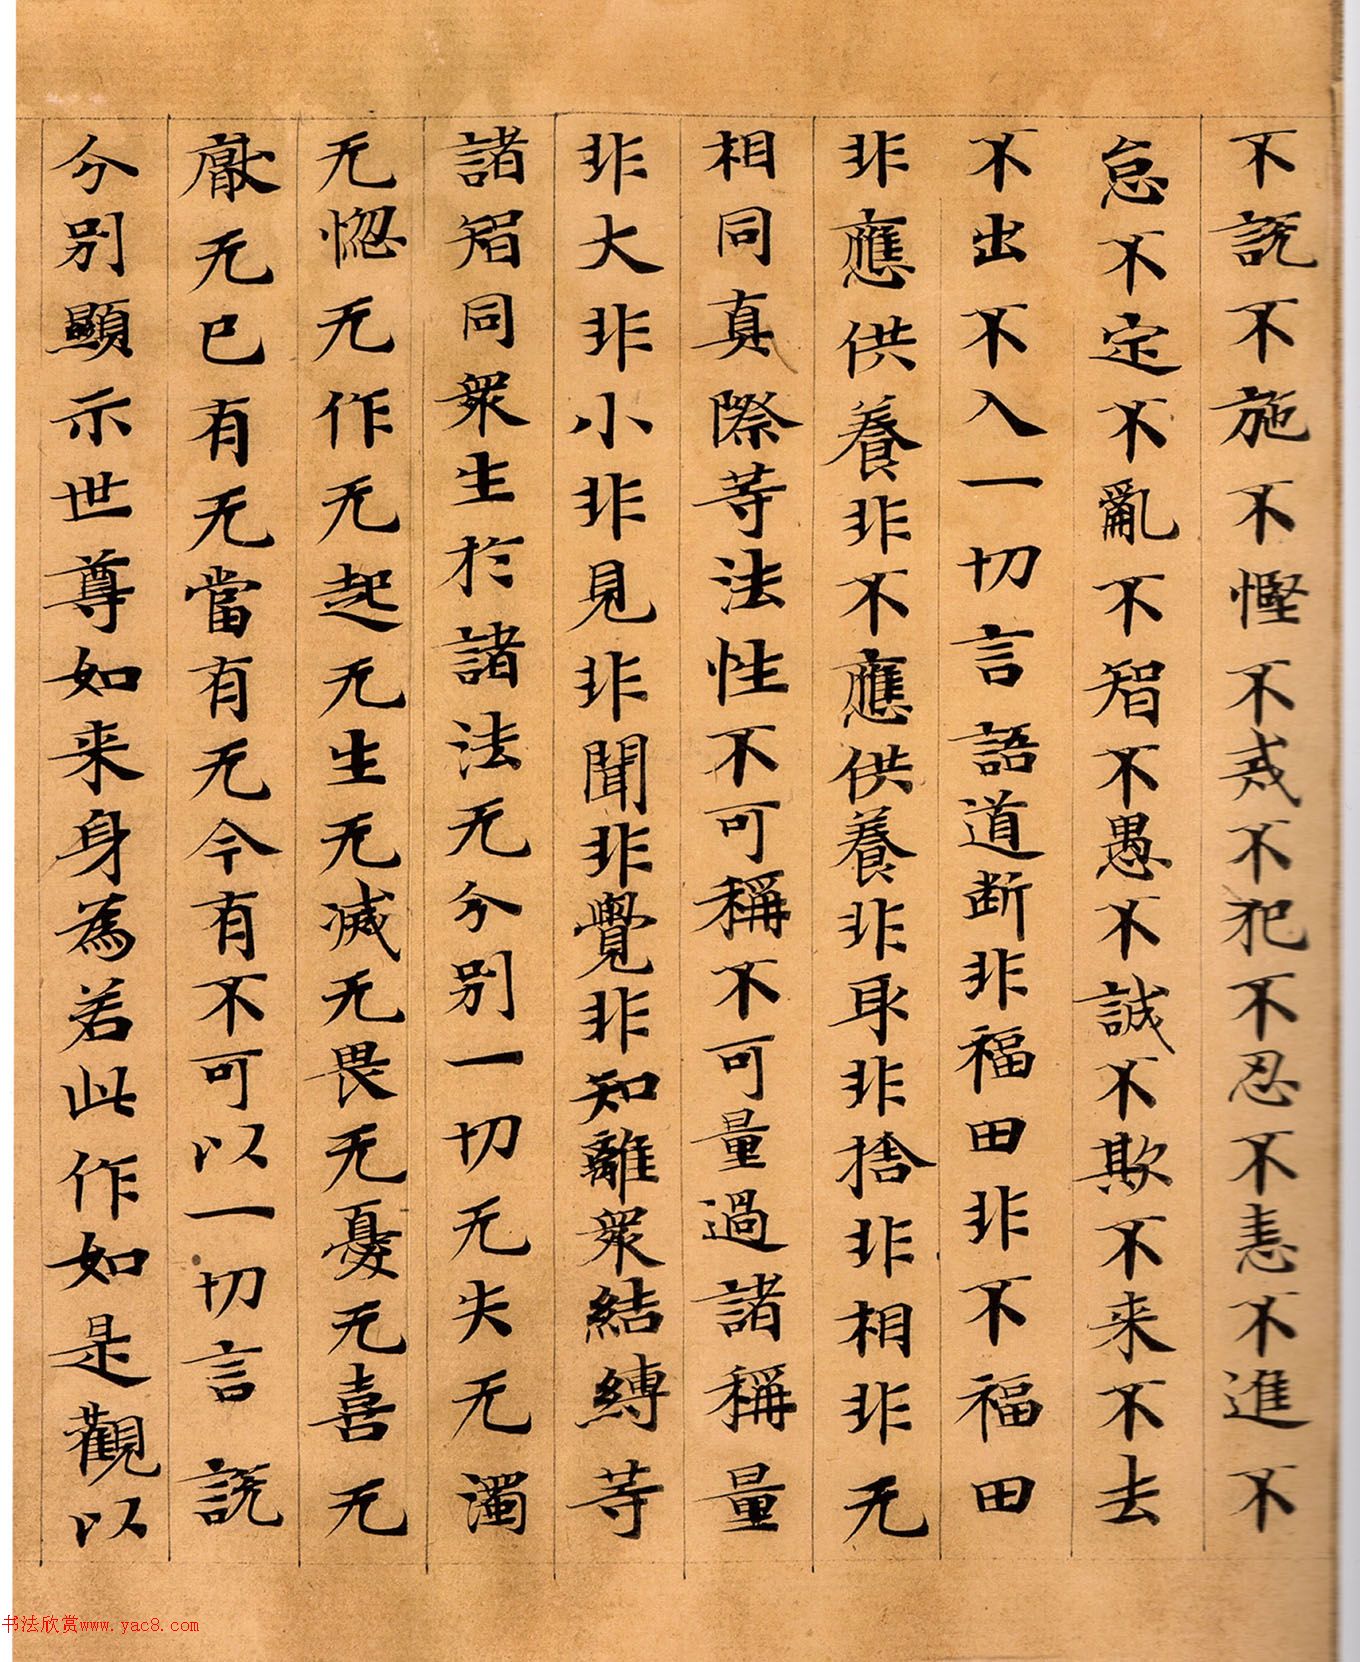 不說不施不慳不戒不犯不忍不恚不進不
怠不定不亂不智不愚不誠不欺不来不去
不出不入一切言語道断非福田非不福田
非應供養非不應供養非取非捨非相非无
相同真際等法性不可稱不可量過諸稱量
非大非小非見非聞非覺非知離衆結縛等
諸智同衆生於諸法无分别一切无失无濁
无惱无作无起无生无滅无畏无憂无喜无
厭无已有无當有无今有不可以一切言說
分别顯示世尊如来身為若此作如是觀以
书法欣赏www.yac8.com